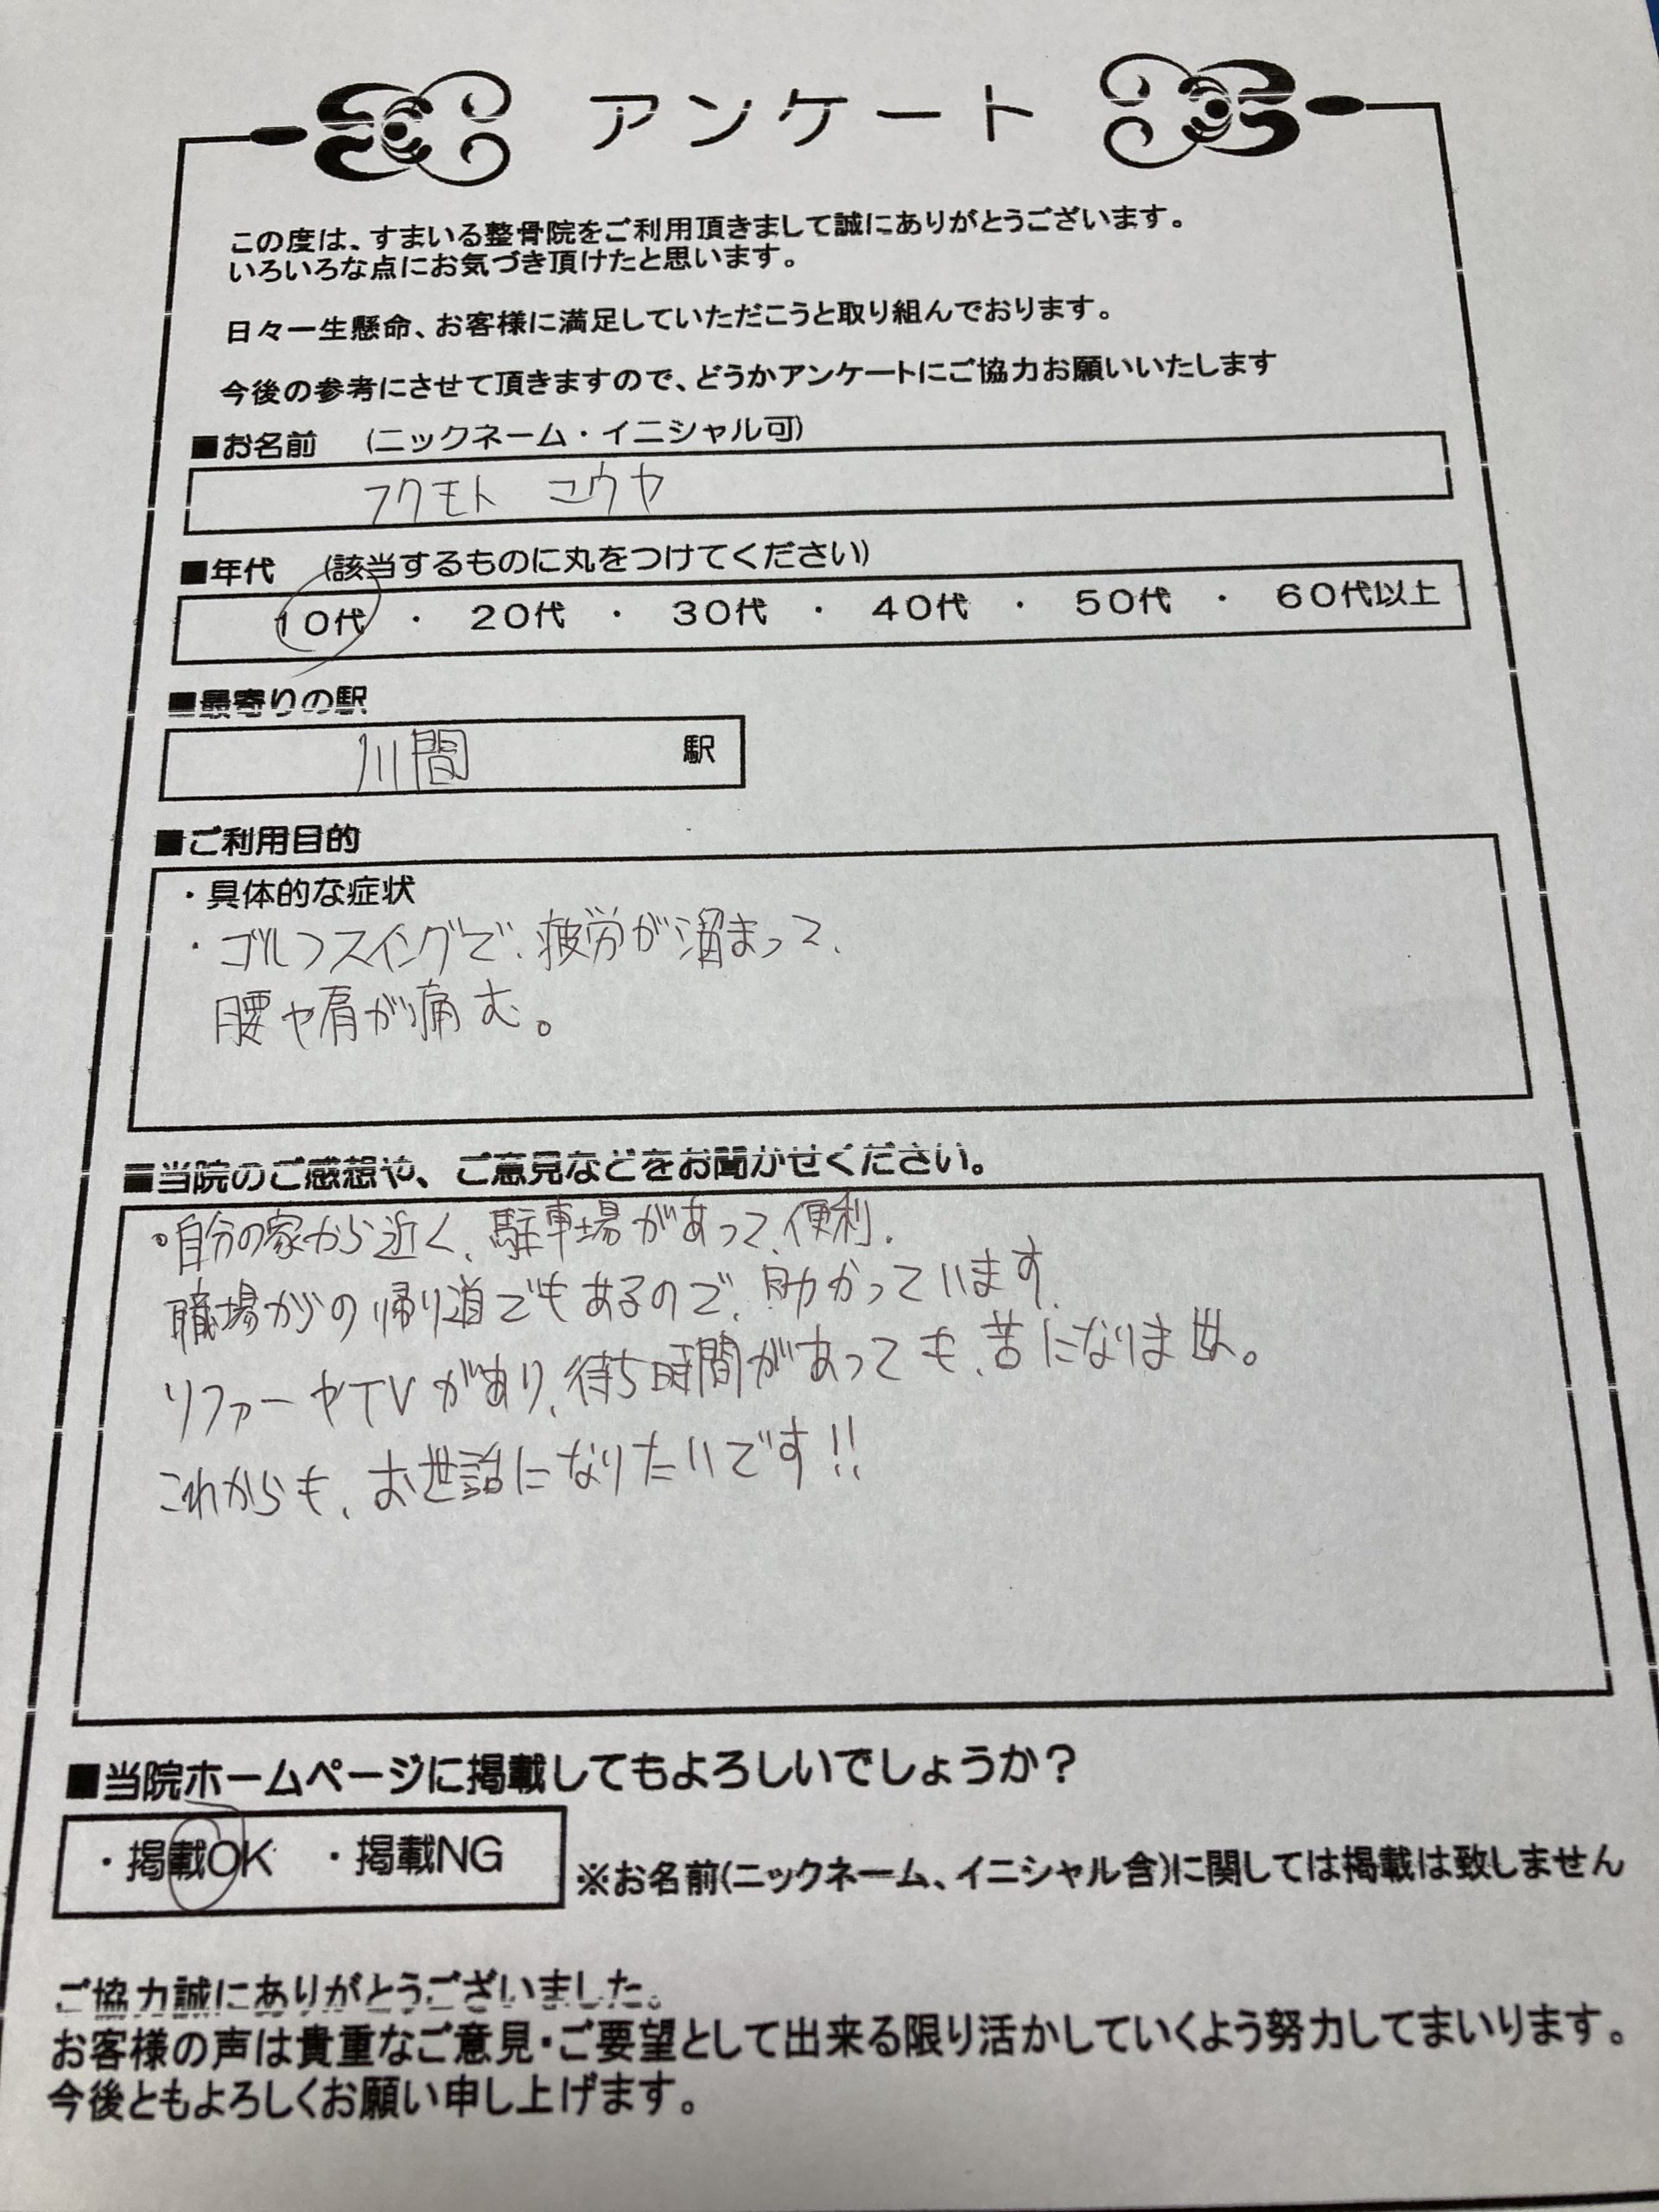 アンケート
この度は、すまいる整骨院をご利用頂きまして誠にありがとうございます。
いろいろな点にお気づき頂けたと思います。
日々一生懸命、お客様に満足していただこうと取り組んでおります。
今後の参考にさせて頂きますので、どうかアンケートにご協力お願いいたします
■お名前 (ニックネーム・イニシャル可)
フクモト コウヤ
■年代 (該当するものに丸をつけてください)
10代 ・ 20代 ・ 30代 ・ 40代 ・ 50代 ・ 60代以上
■最寄りの駅
川間 駅
■ご利用目的
・具体的な症状
・ゴルフスイングで、疲労が溜まって、
腰や肩が痛む。
■当院のご感想や、ご意見などをお聞かせください。
・自分の家から近く、駐車場があって、便利。
職場からの帰り道でもあるので、助かっています。
ソファーやTVがあり、待ち時間があっても、苦になりません。
これからも、お世話になりたいです!!
■当院ホームページに掲載してもよろしいでしょうか?
・掲載OK ・掲載NG ※お名前(ニックネーム、イニシャル含)に関しては掲載は致しません
ご協力誠にありがとうございました。
お客様の声は貴重なご意見・ご要望として出来る限り活かしていくよう努力してまいります。
今後ともよろしくお願い申し上げます。